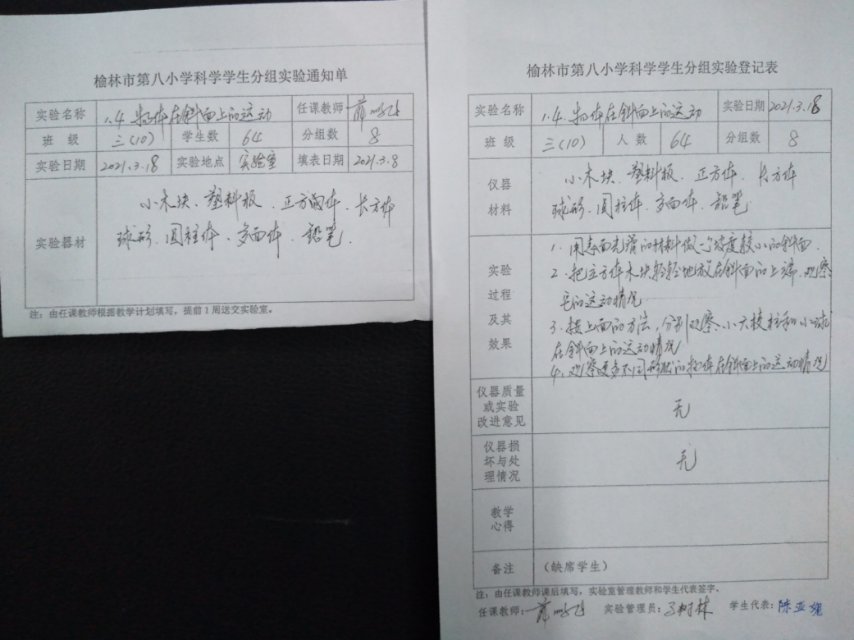 榆林市第八小学科学学生分组实验通知单
实验名称 1.4 物体在斜面上的运动 任课教师
班 级 三(10) 学生数 64 分组数 8
实验日期 2021.3.18 实验地点 实验室 填表日期 2021.3.8
实验器材
小木块、塑料板、正方体、长方体
球形、圆柱体、多面体、铅笔.
注：由任课教师根据教学计划填写，提前1周送交实验室。
榆林市第八小学科学学生分组实验登记表
实验名称 1.4 物体在斜面上的运动 实验日期 2021.3.18
班 级 三(10) 人 数 64 分组数 8
仪器
材料
小木块、塑料板、正方体、长方体
球形、圆柱体、多面体、铅笔
实验
过程
及其
效果
1. 用表面光滑的材料做一个坡度较小的斜面.
2. 把立方体木块轻轻地放在斜面的上端,观察
它的运动情况
3. 按上面的方法,分别观察小六棱柱和小球
在斜面上的运动情况
4. 观察更多不同形状的物体在斜面上的运动情况
仪器质量
或实验
改进意见
无
仪器损
坏与处
理情况
无
教学
心得
备注 （缺席学生）
注：由任课教师课后填写，实验室管理教师和学生代表签字。
任课教师： 实验管理员： 学生代表：陈亚